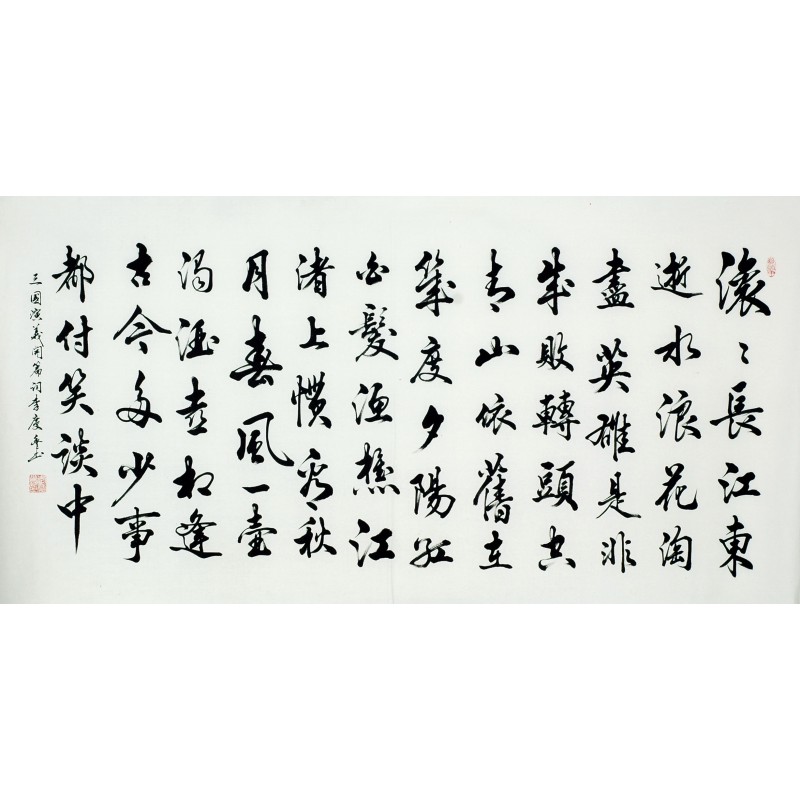 滚〻長江東
逝水浪花淘
盡英雄是非
成敗轉頭空
青山依舊在
幾度夕陽紅
白髮漁樵江
渚上慣看秋
月春風一壺
濁酒喜相逢
古今多少事
都付笑談中
三國演義開篇詞李慶